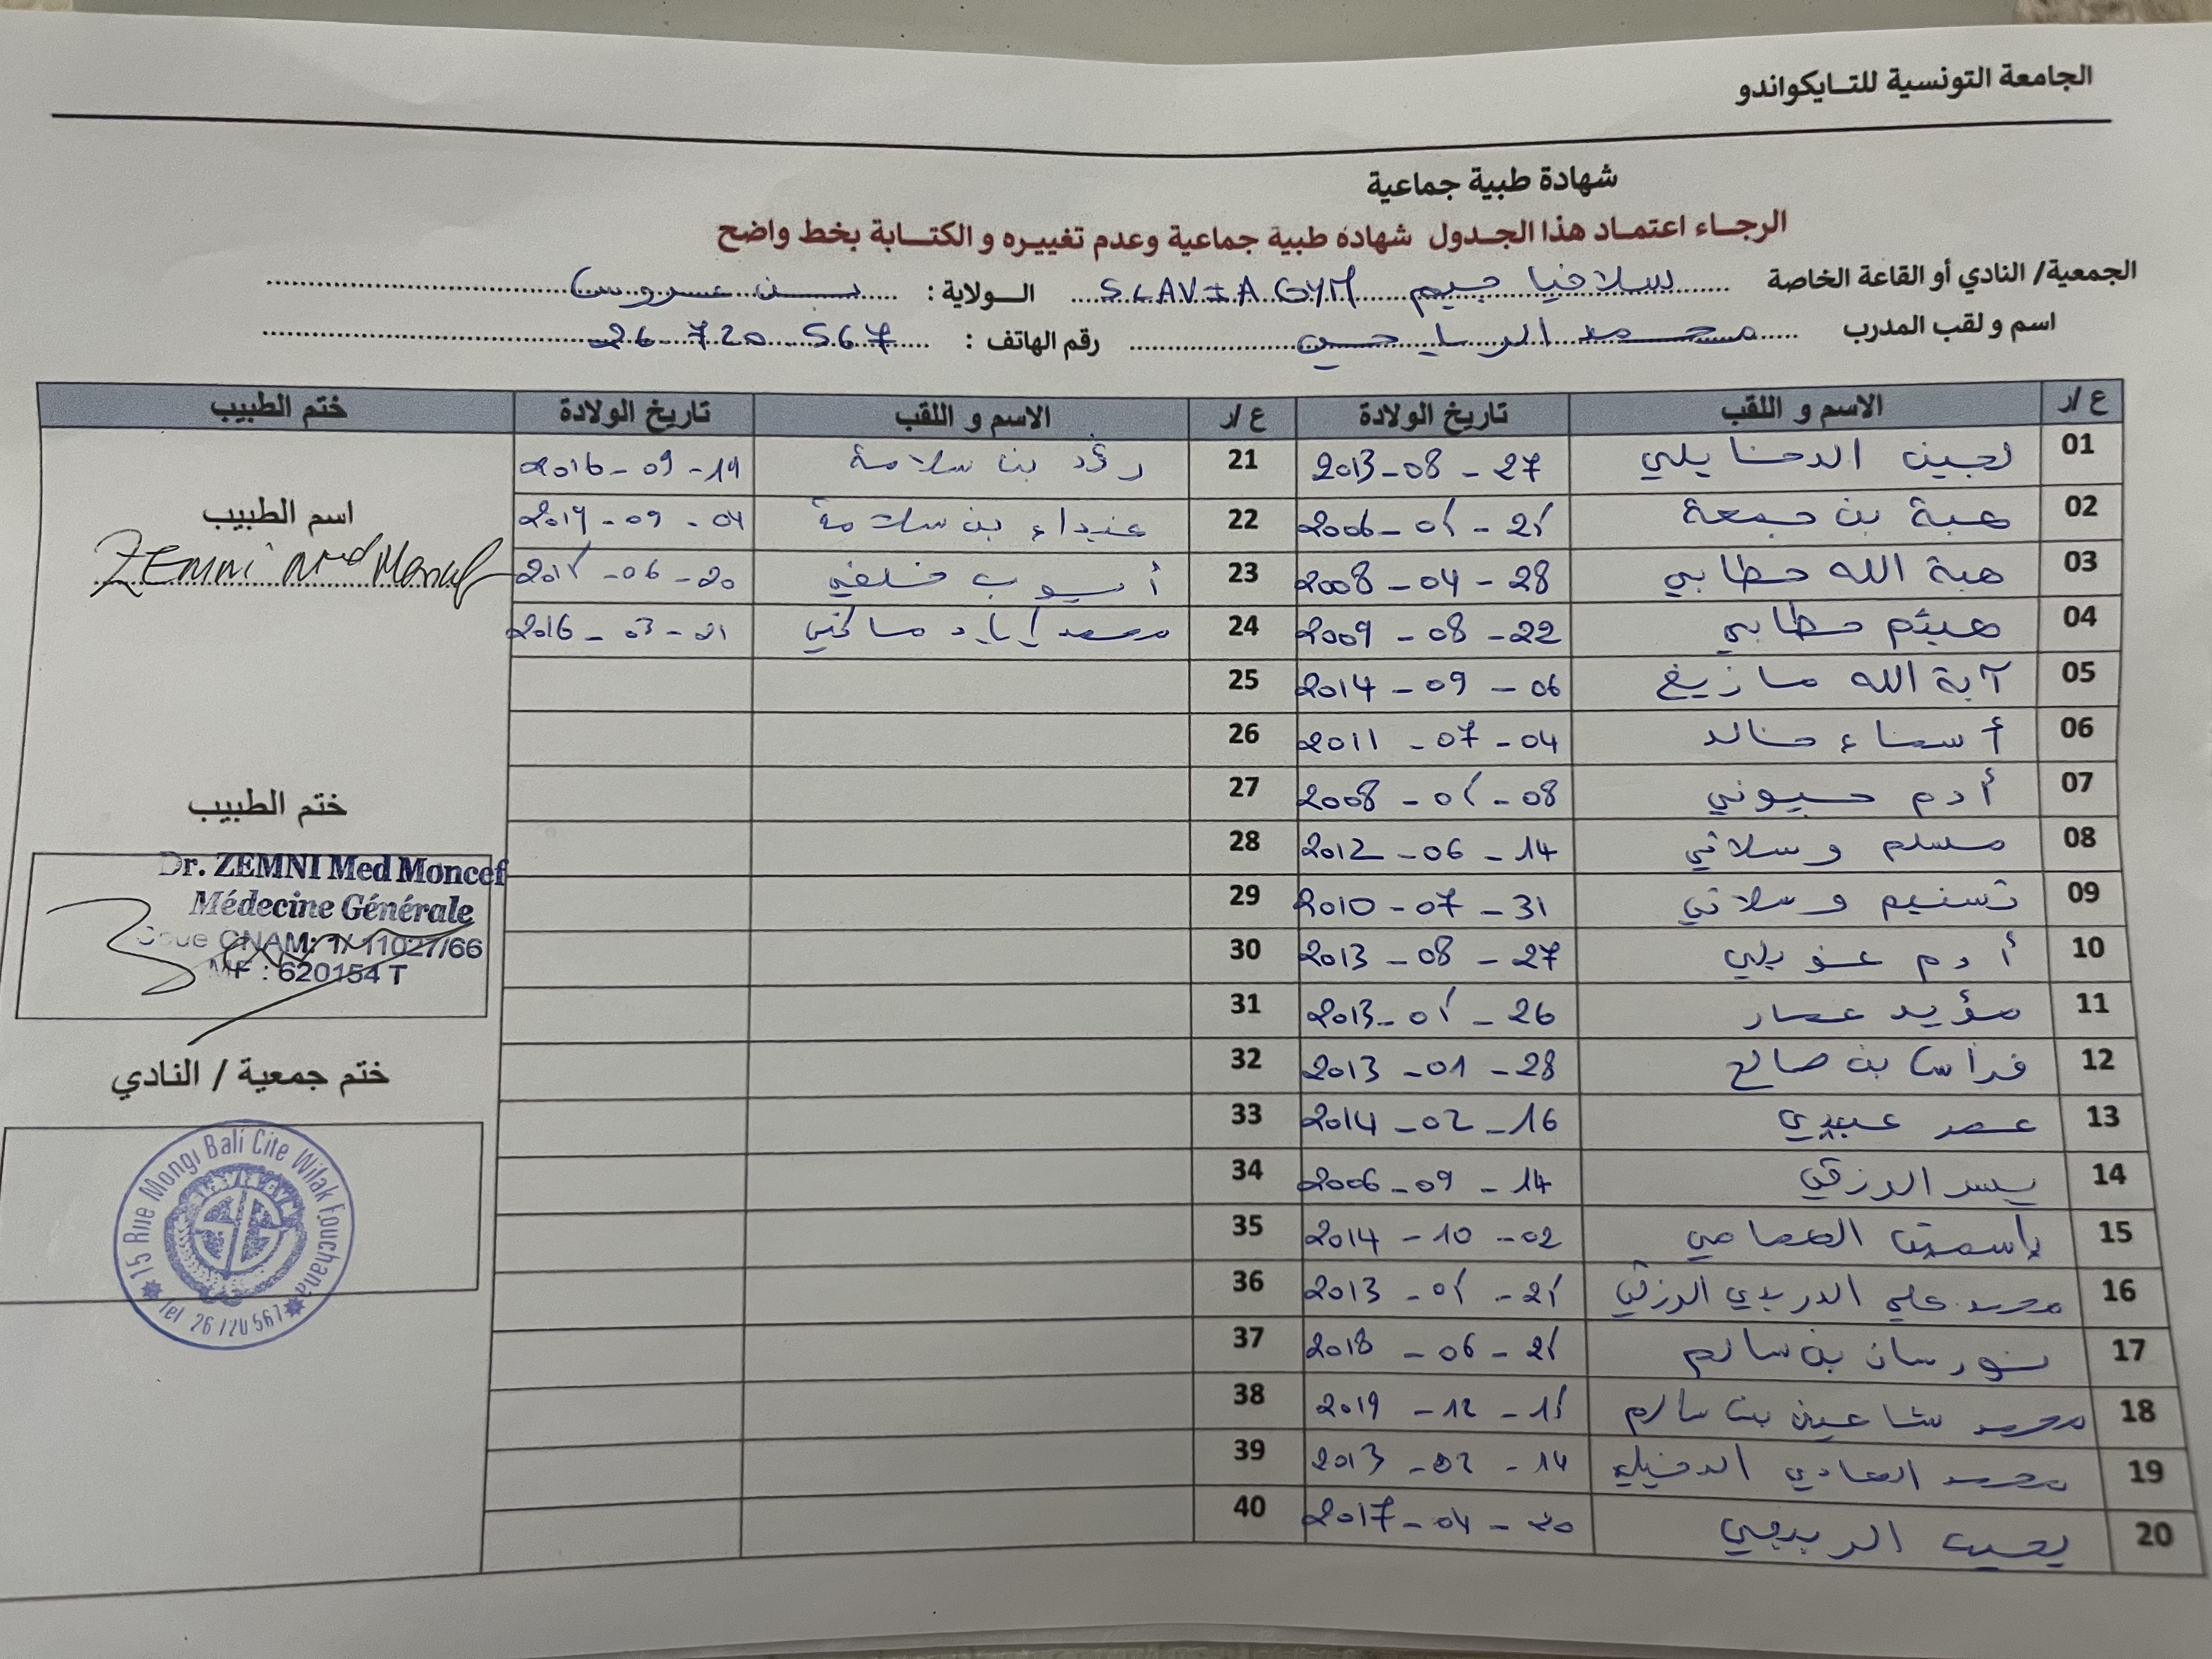 الجامعة التونسية للتـايكواندو
شهادة طبية جماعية
الرجـاء اعتمـاد هذا الجـدول شهادة طبية جماعية وعدم تغييره و الكتـابة بخط واضح
الجمعية/ النادي أو القاعة الخاصة سلافيا جيم SLAVIA GYM الـولاية : بن عروس
اسم و لقب المدرب محمد الرياحي رقم الهاتف : 26 720 567
ع /ر الاسم و اللقب تاريخ الولادة ع /ر الاسم و اللقب تاريخ الولادة ختم الطبيب
01 لجين الدخايلي 2013-08-27 21 رؤد بن سلامة 2016-09-14
02 هبة بن جمعة 2006- 22 غيداء بن سلامة -09-04
03 هبة الله حطابي 2008-04-28 23 أيوب خلفي -06-20
04 هيثم حطابي 2009-08-22 24 محمد إياد 2016-03-01
05 آية الله مازيغ 2014-09-06 25
06 أسماء خالد 2011-07-04 26
07 أدم حيوني 2008- -08 27
08 مسلم وسلاتي 2012-06-14 28
09 تسنيم وسلاتي 2010-07-31 29
10 أدم عويلي 2013-08-27 30
11 مؤيد عمار 2013- -26 31
12 فراس بن صالح 2013-01-28 32
13 عمر عبيدي 2014-02-16 33
14 يسر الرزقي 2006-09-14 34
15 ياسمين 2014-10-02 35
16 محمد علي الدريدي الرزقي 2013- 36
17 نورسان بن سالم 2018-06- 37
18 محمد شاهين بن سالم 2019-12- 38
19 محمد الهادي الدخيلي 2013-02-14 39
20 يحيى 2017-04- 40
اسم الطبيب
ZEMNI Med Moncef
ختم الطبيب
Dr. ZEMNI Med Moncef
Médecine Générale
Code CNAM: 1/ 11027/66
MF : 620154 T
ختم جمعية / النادي
15 Rue Mongi Bali Cite Wifak Fouchana
Tel 26 720 567